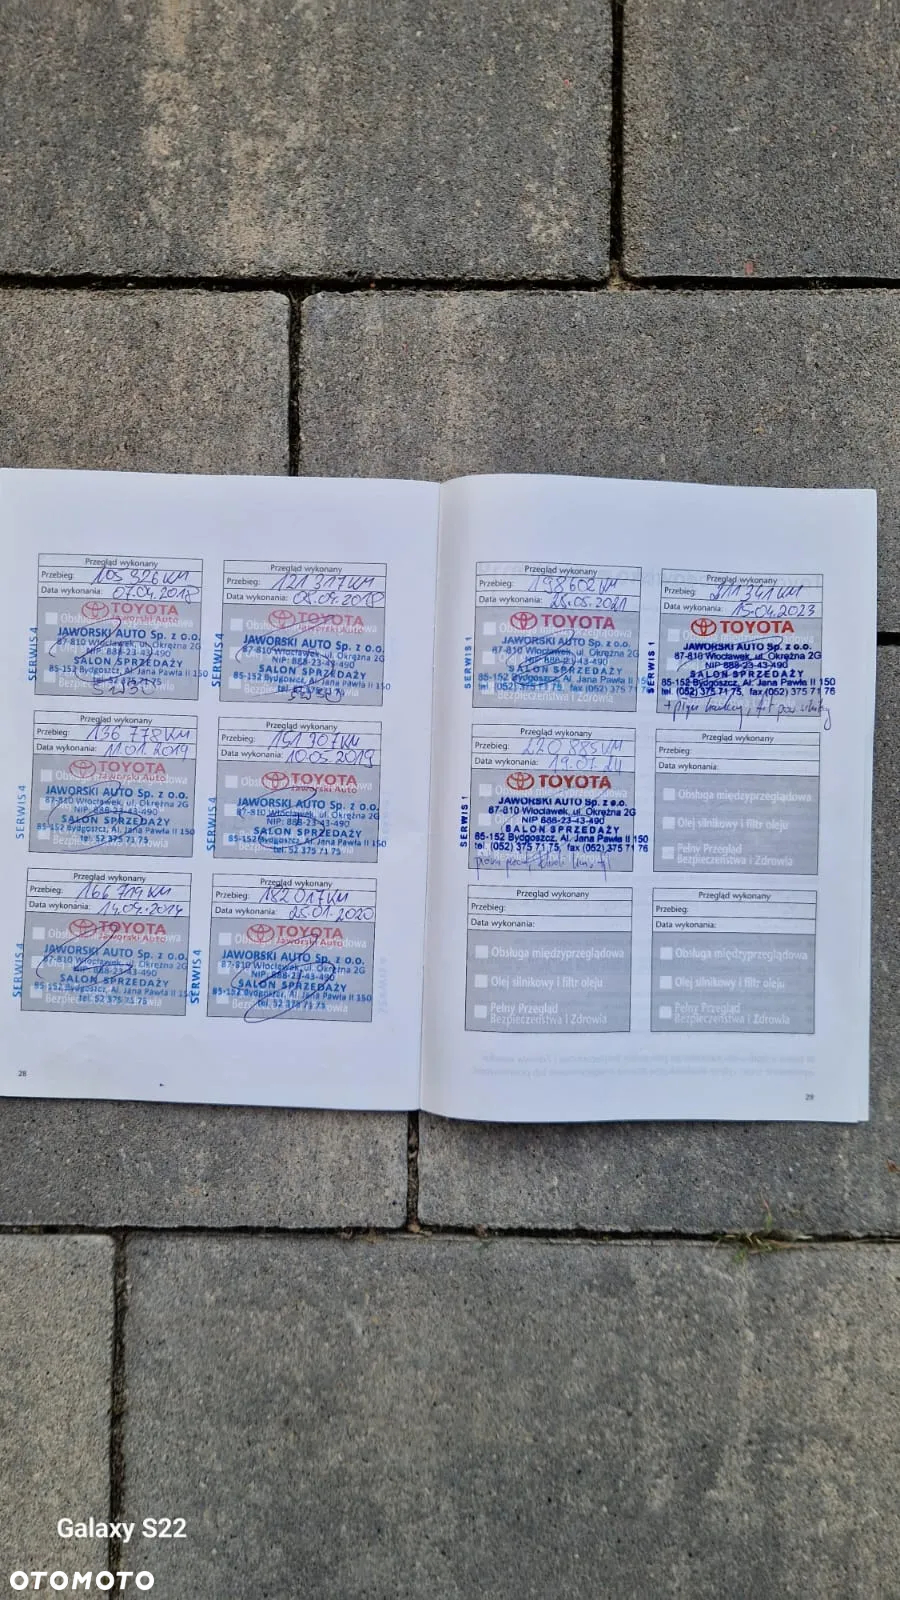 Przegląd wykonany
Przebieg: 105 326 KM
Data wykonania: 07.04.2018
TOYOTA
Jaworski Auto
JAWORSKI AUTO Sp. z o.o.
87-810 Włocławek, ul. Okrężna 2G
NIP: 888-23-43-490
SALON SPRZEDAŻY
85-152 Bydgoszcz, Al. Jana Pawła II 150
tel. 52 375 71 75
SERWIS 4
Przegląd wykonany
Przebieg: 121 317 KM
Data wykonania: 08.09.2018
TOYOTA
Jaworski Auto
JAWORSKI AUTO Sp. z o.o.
87-810 Włocławek, ul. Okrężna 2G
NIP: 888-23-43-490
SALON SPRZEDAŻY
85-152 Bydgoszcz, Al. Jana Pawła II 150
tel. 52 375 71 75
SERWIS 4
Przegląd wykonany
Przebieg: 136 778 KM
Data wykonania: 11.01.2019
TOYOTA
Jaworski Auto
JAWORSKI AUTO Sp. z o.o.
87-810 Włocławek, ul. Okrężna 2G
NIP: 888-23-43-490
SALON SPRZEDAŻY
85-152 Bydgoszcz, Al. Jana Pawła II 150
tel. 52 375 71 75
SERWIS 4
Przegląd wykonany
Przebieg: 151 907 KM
Data wykonania: 10.05.2019
TOYOTA
Jaworski Auto
JAWORSKI AUTO Sp. z o.o.
87-810 Włocławek, ul. Okrężna 2G
NIP: 888-23-43-490
SALON SPRZEDAŻY
85-152 Bydgoszcz, Al. Jana Pawła II 150
tel. 52 375 71 75
SERWIS 4
Przegląd wykonany
Przebieg: 166 719 KM
Data wykonania: 14.09.2019
TOYOTA
Jaworski Auto
JAWORSKI AUTO Sp. z o.o.
87-810 Włocławek, ul. Okrężna 2G
NIP: 888-23-43-490
SALON SPRZEDAŻY
85-152 Bydgoszcz, Al. Jana Pawła II 150
tel. 52 375 71 75
SERWIS 4
Przegląd wykonany
Przebieg: 182 017 KM
Data wykonania: 25.01.2020
TOYOTA
Jaworski Auto
JAWORSKI AUTO Sp. z o.o.
87-810 Włocławek, ul. Okrężna 2G
NIP: 888-23-43-490
SALON SPRZEDAŻY
85-152 Bydgoszcz, Al. Jana Pawła II 150
tel. 52 375 71 75
SERWIS 4
28
Przegląd wykonany
Przebieg: 198 602 KM
Data wykonania: 28.05.2021
TOYOTA
JAWORSKI AUTO Sp. z o.o.
87-810 Włocławek, ul. Okrężna 2G
NIP 888-23-43-490
SALON SPRZEDAŻY
85-152 Bydgoszcz, Al. Jana Pawła II 150
tel. (052) 375 71 75, fax (052) 375 71 76
SERWIS 1
Przegląd wykonany
Przebieg: 211 341 KM
Data wykonania: 15.04.2023
TOYOTA
JAWORSKI AUTO Sp. z o.o.
87-810 Włocławek, ul. Okrężna 2G
NIP 888-23-43-490
SALON SPRZEDAŻY
85-152 Bydgoszcz, Al. Jana Pawła II 150
tel. (052) 375 71 75, fax (052) 375 71 76
SERWIS 1
Przegląd wykonany
Przebieg: 220 885 KM
Data wykonania: 19.07.24
TOYOTA
JAWORSKI AUTO Sp. z o.o.
87-810 Włocławek, ul. Okrężna 2G
NIP 888-23-43-490
SALON SPRZEDAŻY
85-152 Bydgoszcz, Al. Jana Pawła II 150
tel. (052) 375 71 75, fax (052) 375 71 76
SERWIS 1
Przegląd wykonany
Przebieg:
Data wykonania:
Obsługa międzyprzeglądowa
Olej silnikowy i filtr oleju
Pełny Przegląd
Bezpieczeństwa i Zdrowia
Przegląd wykonany
Przebieg:
Data wykonania:
Obsługa międzyprzeglądowa
Olej silnikowy i filtr oleju
Pełny Przegląd
Bezpieczeństwa i Zdrowia
Przegląd wykonany
Przebieg:
Data wykonania:
Obsługa międzyprzeglądowa
Olej silnikowy i filtr oleju
Pełny Przegląd
Bezpieczeństwa i Zdrowia
29
Galaxy S22
OTOMOTO